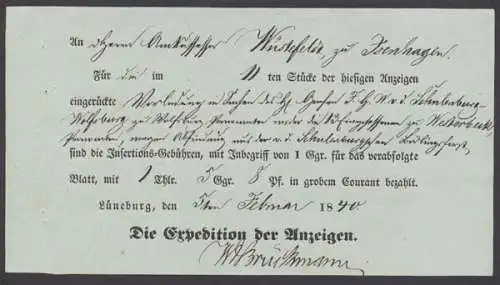 An Herrn Amtsassessor Wüstefeld, zu Isenhagen.
Für die im 11 ten Stücke der hiesigen Anzeigen
eingerückte Vorladung in Sachen des H. Grafen F. G. W. v. d. Schulenburg
Wolfsburg zu Wolfsburg, Provocanten wider die Eingesessenen zu Westerbeck,
Provocaten, wegen Ablösung aus der v. d. Schulenburgschen
sind die Insertions-Gebühren, mit Inbegriff von 1 Ggr. für das verabfolgte
Blatt, mit 1 Thlr. 5 Ggr. 8 Pf. in grobem Courant bezahlt.
Lüneburg, den 5ten Februar 1840
Die Expedition der Anzeigen.
Brückmann